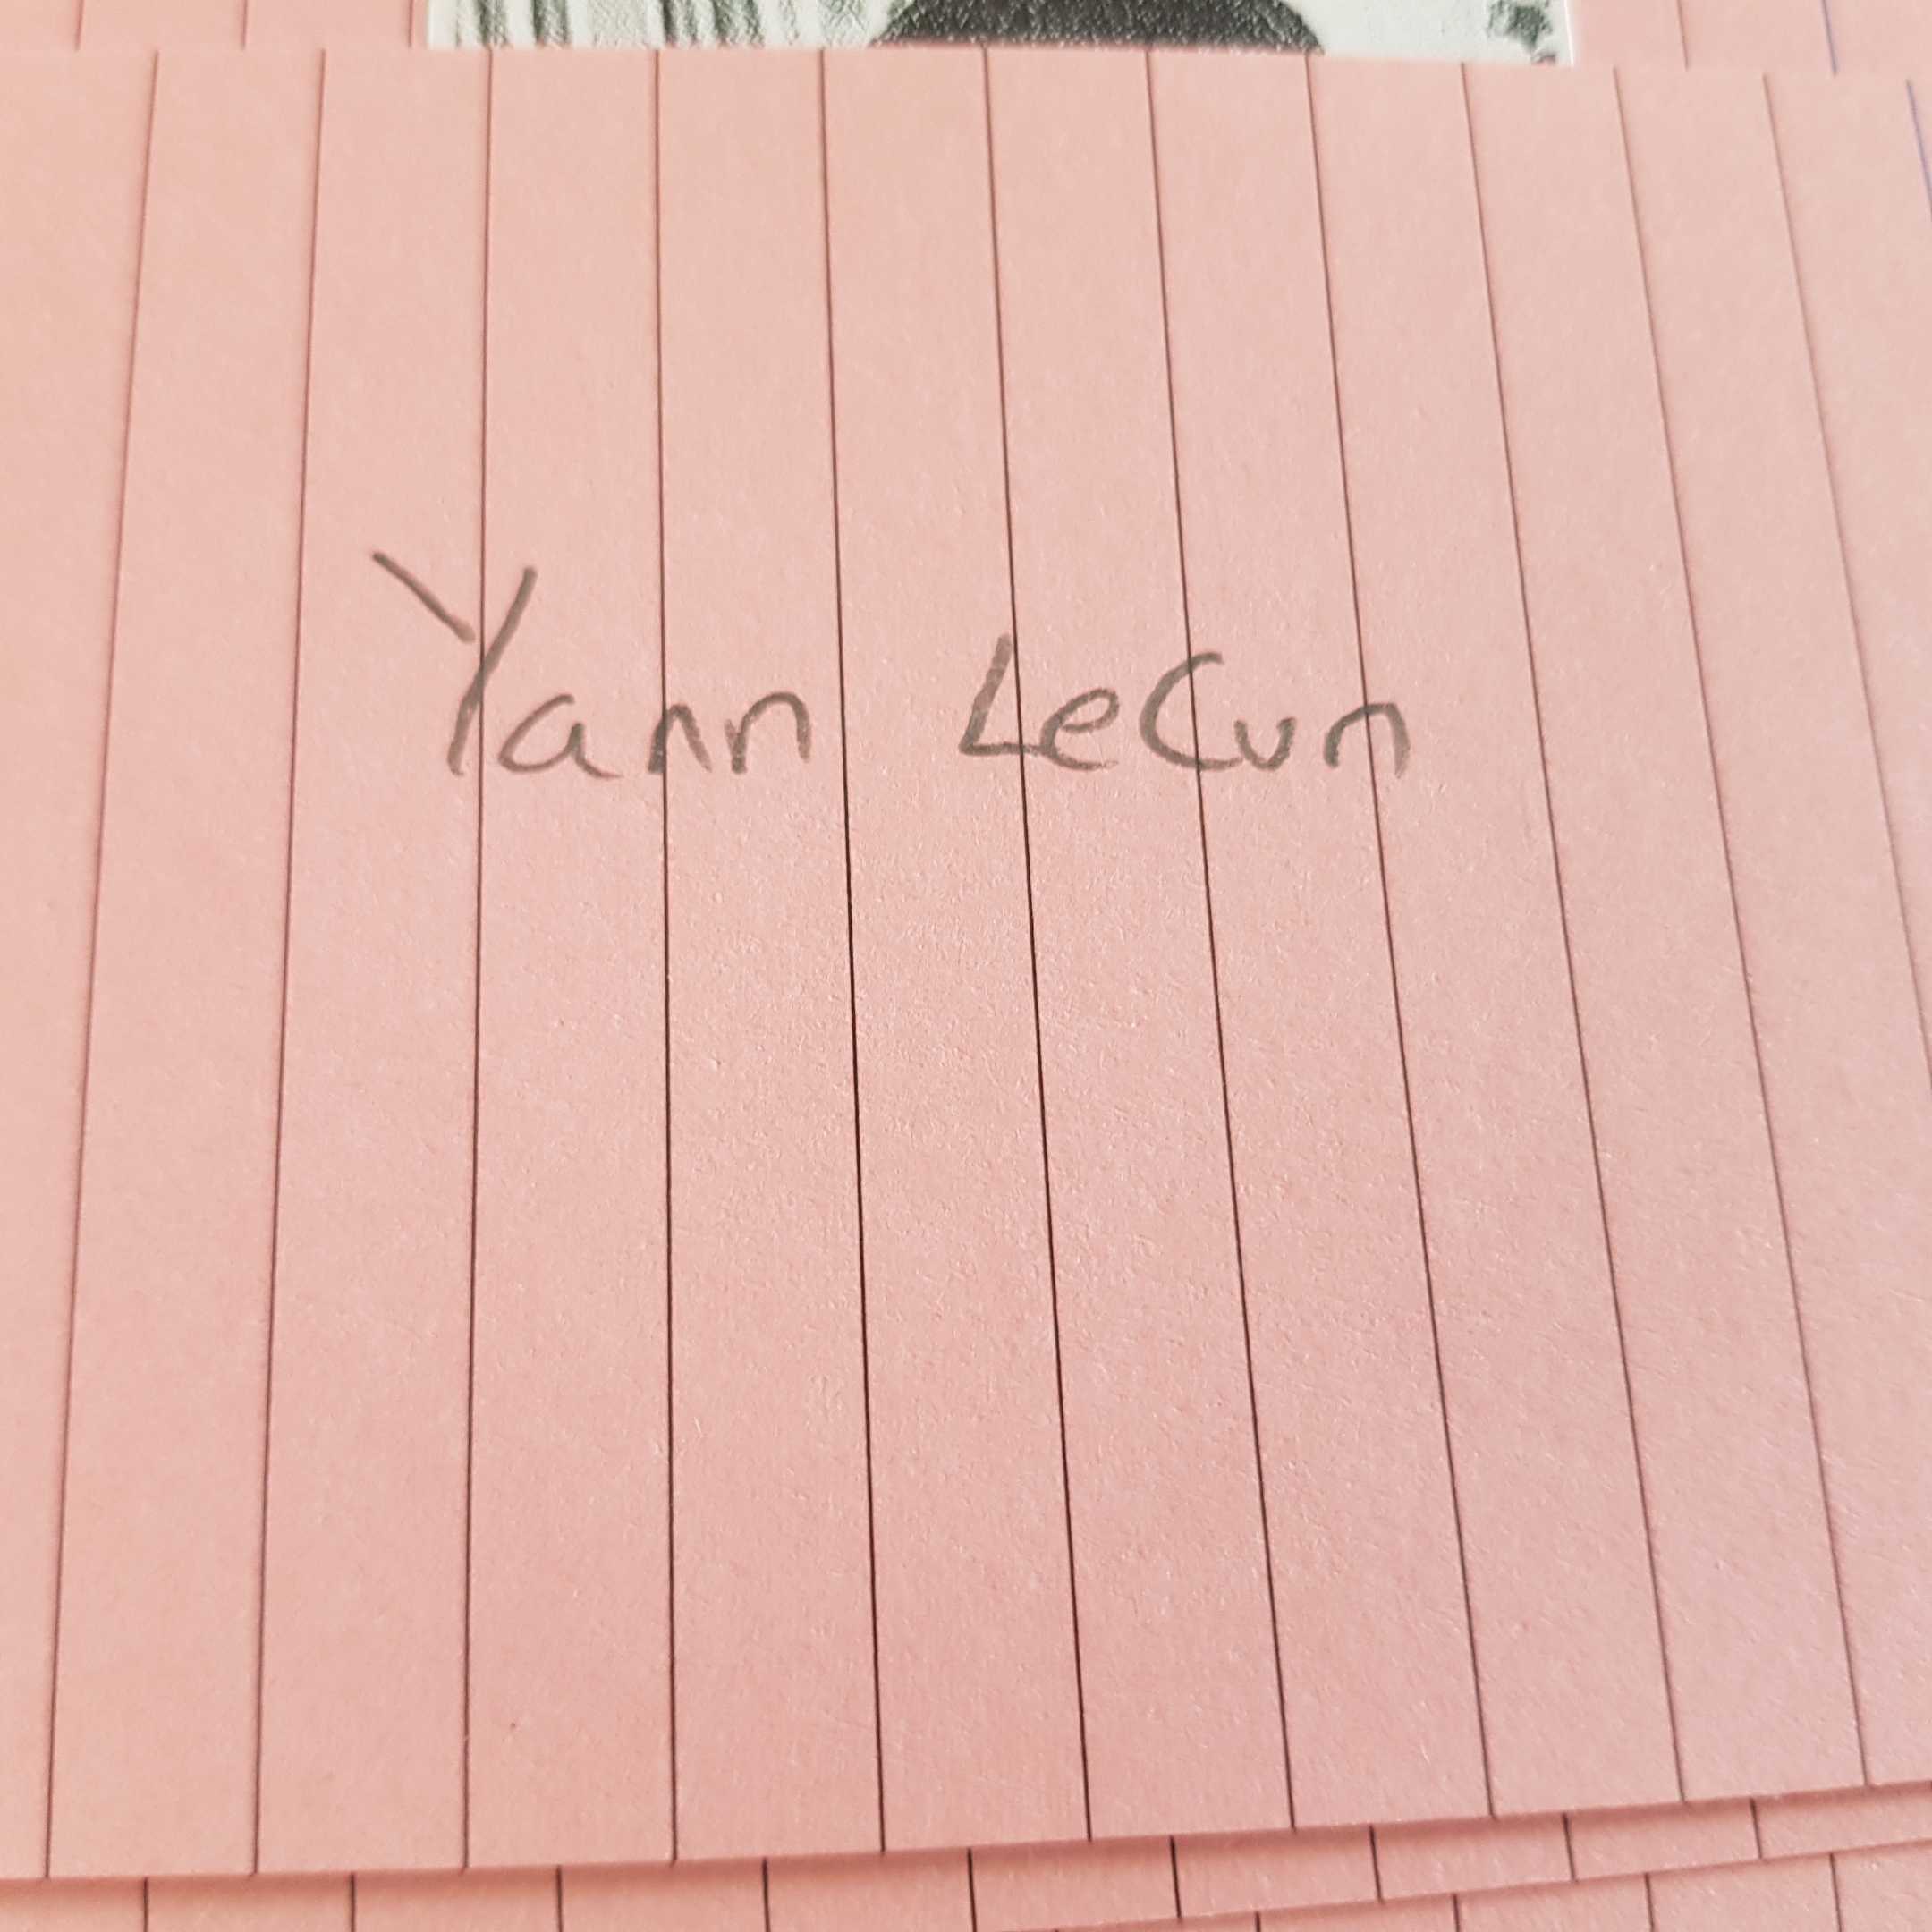 Yann LeCun